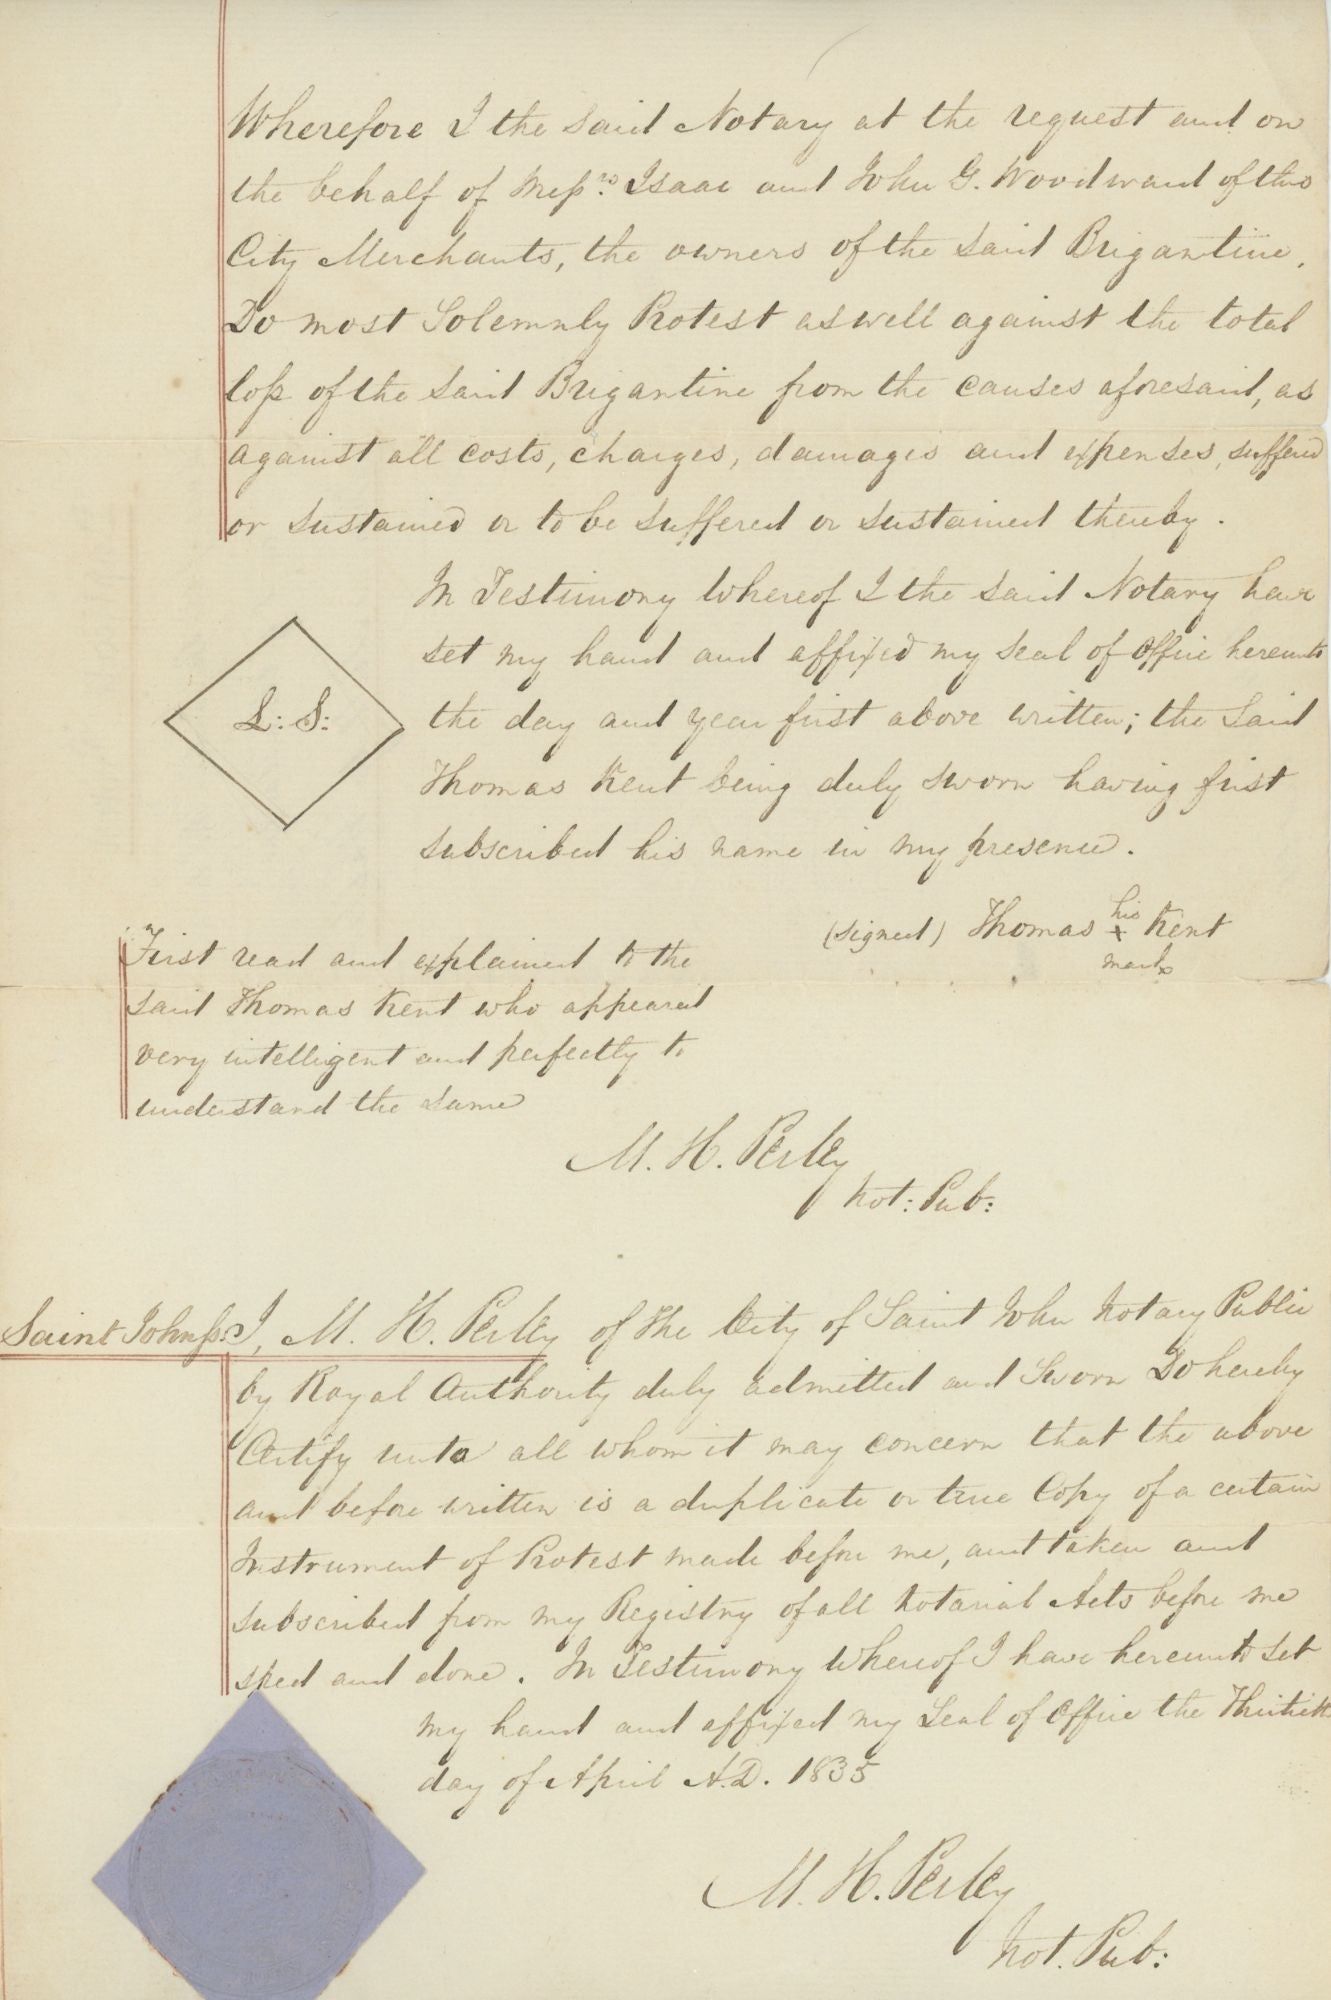 Wherefore I the said Notary at the request and on
the behalf of Messrs. Isaac and John G. Woodward of this
City Merchants, the owners of the said Brigantine,
Do most Solemnly Protest as well against the total
loss of the said Brigantine from the causes aforesaid, as
against all costs, charges, damages and expenses, suffered
or sustained or to be suffered or sustained thereby.
In Testimony Whereof I the said Notary have
set my hand and affixed my seal of office hereunto
L: S:
the day and year first above written; the said
Thomas Kent being duly sworn having first
subscribed his name in my presence.
(signed) Thomas his + mark Kent
First read and explained to the
said Thomas Kent who appeared
very intelligent and perfectly to
understand the same
M. H. Perley
Not: Pub:
Saint John ss: I, M. H. Perley of the City of Saint John Notary Public
by Royal Authority duly admitted and Sworn Do hereby
Certify unto all whom it may concern that the above
and before written is a duplicate or true Copy of a certain
Instrument of Protest made before me, and taken and
subscribed from my Registry of all Notarial Acts before me
sped and done. In Testimony Whereof I have hereunto set
my hand and affixed my Seal of Office the Thirtieth
day of April A.D. 1835
M. H. Perley
Not. Pub: